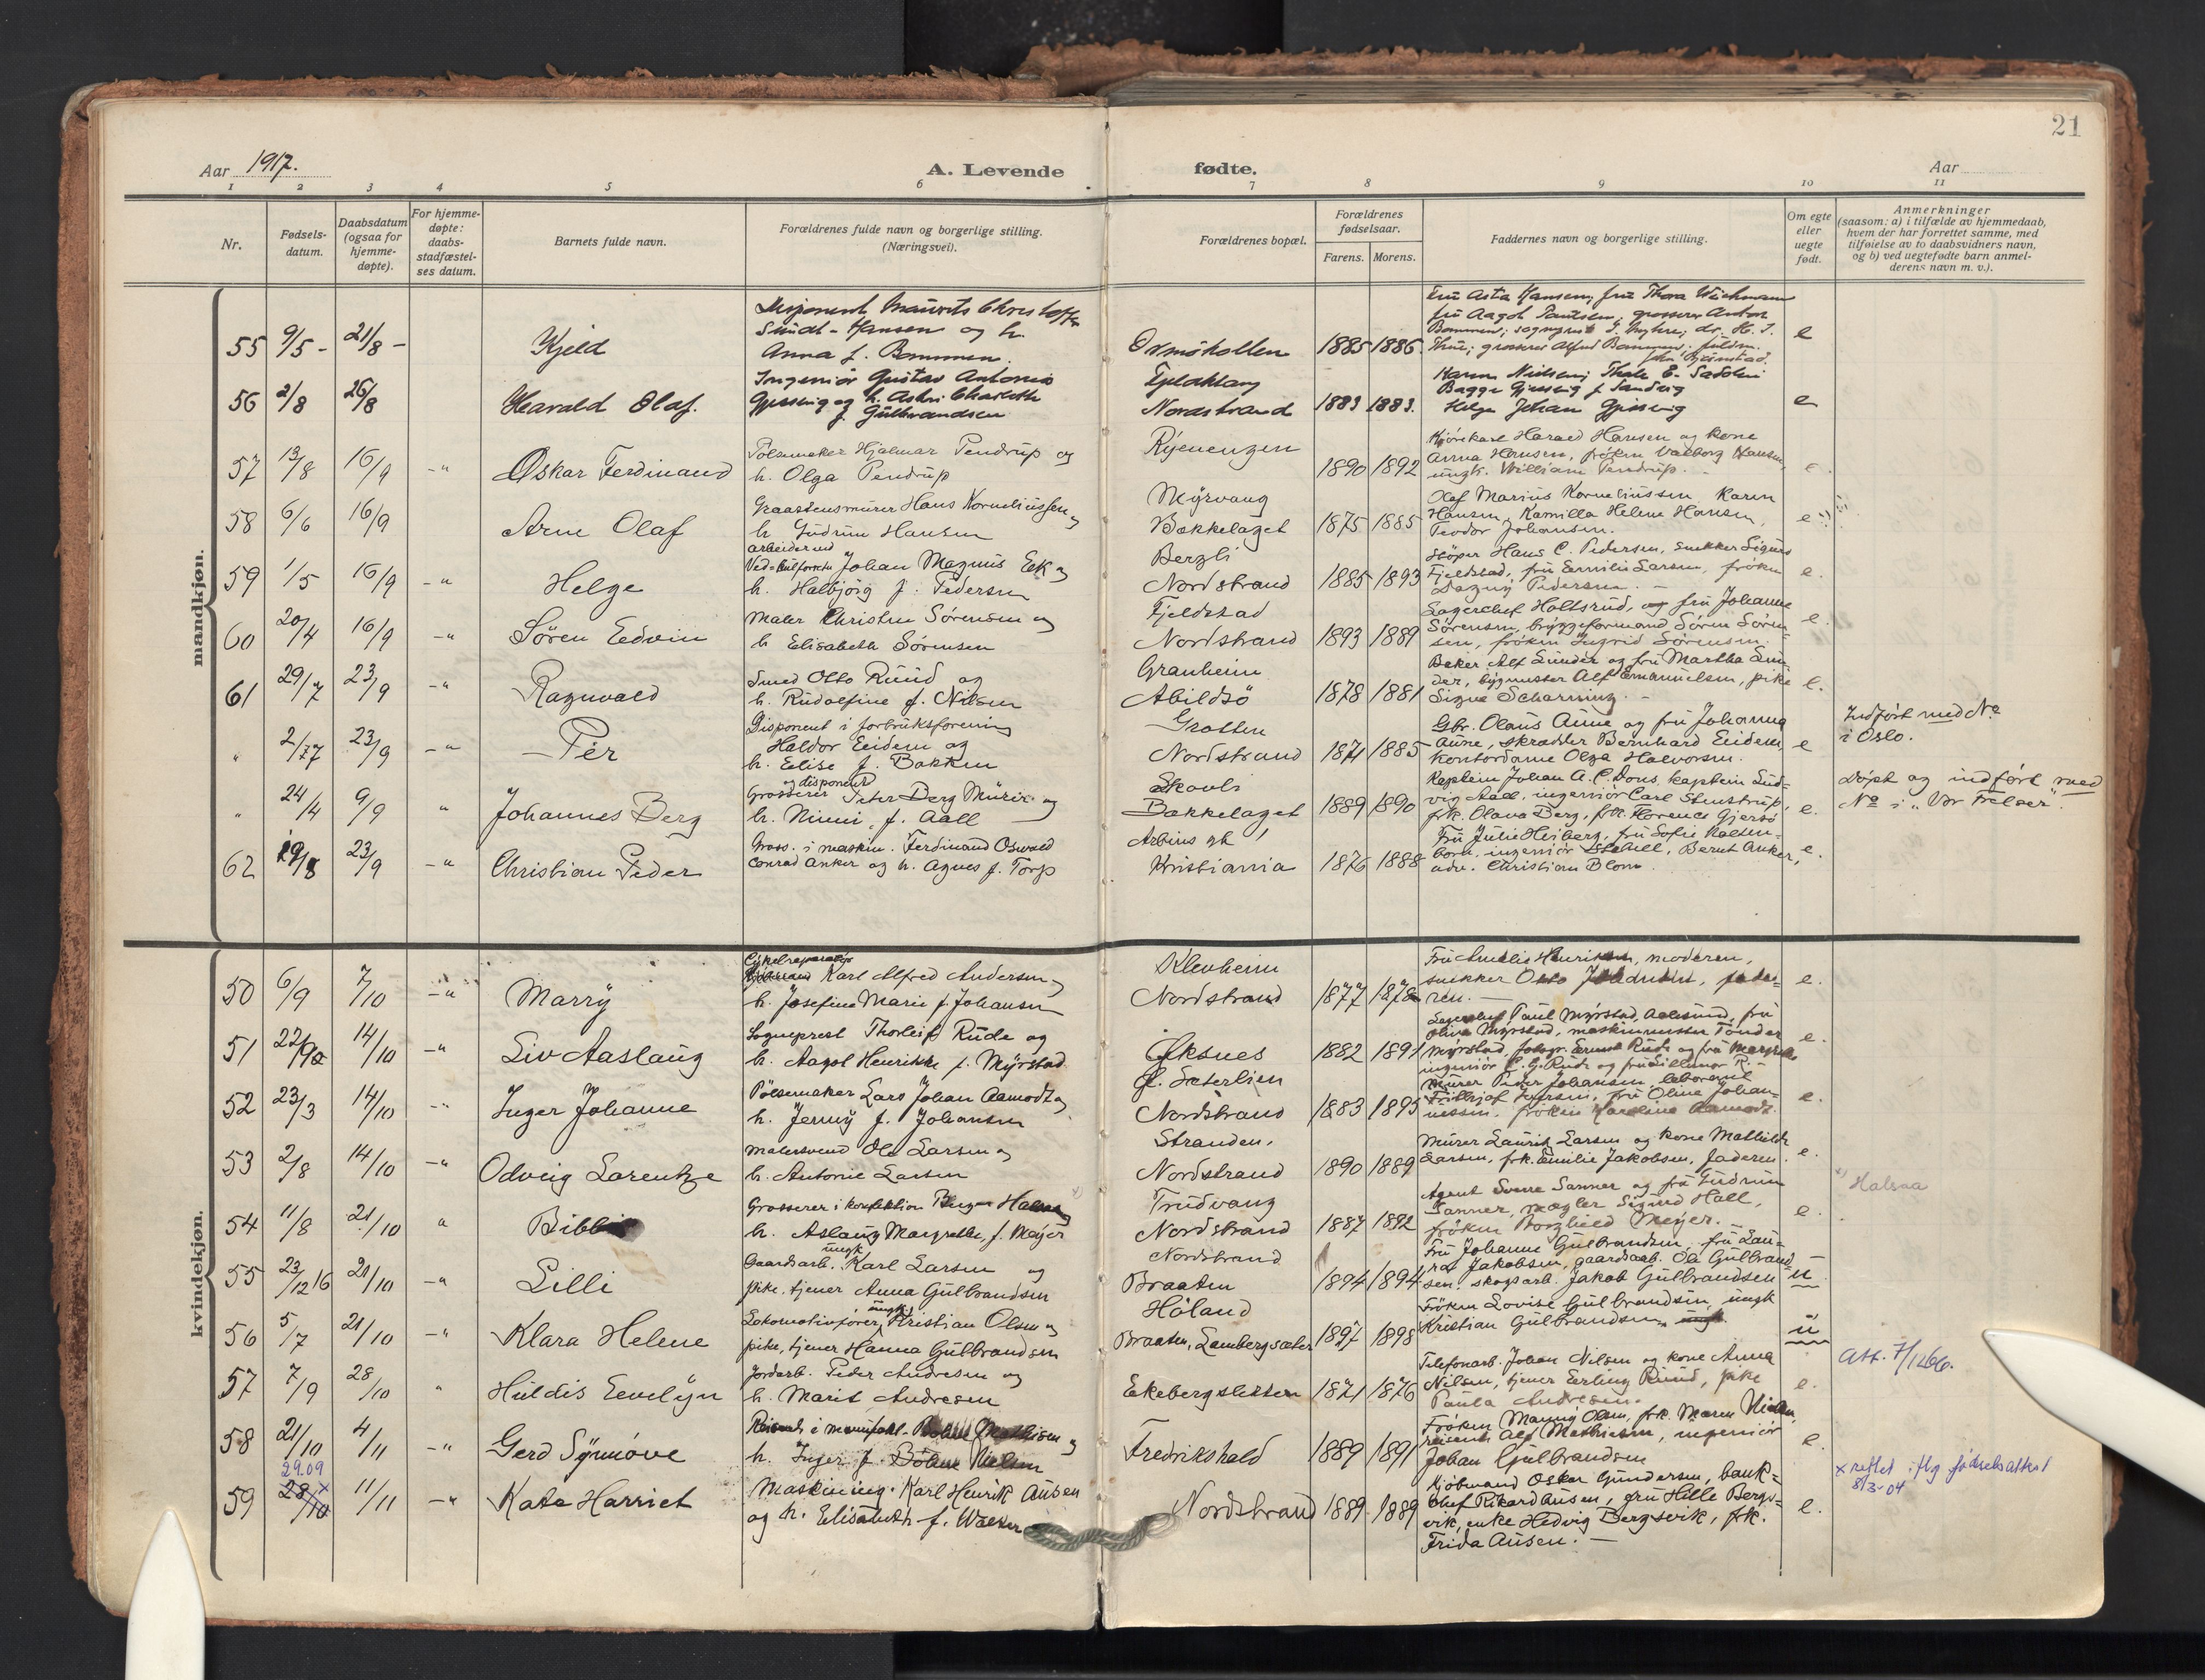 21
Aar 1917.
A. Levende fødte.
Aar
1 2 3 4 5 6 7 8 9 10 11
Nr.
Fødsels-
datum.
Daabsdatum
(ogsaa for
hjemme-
døpte).
For hjemme-
døpte:
daabs-
stadfæstel-
ses datum.
Barnets fulde navn.
Forældrenes fulde navn og borgerlige stilling.
(Næringsvei).
Forældrenes bopæl.
Forældrenes
fødselsaar.
Farens. Morens.
Faddernes navn og borgerlige stilling.
Om egte
eller
uegte
født.
Anmerkninger
(saasom: a) i tilfælde av hjemmedaab,
hvem der har forrettet samme, med
tilføielse av to daabsvidners navn,
og b) ved uegtefødte barn anmel-
derens navn m. v.).
mandkjøn.
55 9/5 - 21/8 - Kjeld
Disponent Maurits Christoffer
Sundt-Hansen og h.
Anna f. Bommen.
Ormøkollen 1885 1886
Fru Asta Hansen, fru Thora Wichmann
e
56 2/8 26/8 Harald Olaf.
Ingeniør Gustav Antonio
Gjessing og h. Astri Charlotte
f. Gulbrandsen
Nordstrand 1883 1883.
Helge Johan Gjessing
e
57 13/8 16/9 -"- Oskar Ferdinand
Pølsemaker Hjalmar Pendrup og
h. Olga Pendrup
Ryenengen 1890 1892
Kjørekarl Harald Hansen og kone
Anna Hansen, frøken Valborg Hansen,
ungk. William Pendrup. -
e.
58 6/6 16/9 Arne Olaf
Graastensmurer Hans Korneliussen og
h. Gudrun Hansen
Myrvang
Bækkelaget 1875 1885
Olaf Marius Korneliussen, Karen
Hansen, Kamilla Helene Hansen,
Teodor Johansen.
e
59 1/5 16/9 -" Helge
arbeider ved
Johan Magnus Eek og
h. Halbjørg f. Pedersen
Bergli
Nordstrand 1885 1893
Støper Hans C. Pedersen, snekker Sigurd
Fjeldstad, fru Emilie Larsen, frøken
Dagny Pedersen. -
e.
60 20/4 16/9 -" Søren Edvin
Maler Christen Sørensen og
h Elisabeth Sørensen
Fjeldstad
Nordstrand 1893 1889
Lagerchef Holtsrud, og fru Johanne
Sørensen, bryggeformand Søren Søren-
sen, frøken Ingrid Sørensen.
e.
61 29/7 23/9 -" Ragnvald
Smed Otto Ruud og
h. Rudolfine f. Nilsen
Granheim
Abildsø 1878 1881
Baker Alf Sunder og fru Martha Sun-
der, bygmester Alf Emanuelsen, pike
Signe Scharning. -
e.
" 2/7 23/9 -" Per
Disponent i forbruksforening
Haldor Eidem og
h. Elise f. Bakken
Grotten
Nordstrand 1871 1885
Gbr. Olaus Aune og fru Johanna
Aune, skrædder Bernhard Eidem,
kontordame Olga Halvorsen.
e
Indført med No
i Oslo.
" 24/4 9/9 " Johannes Berg
og disponent
Grosserer Peter Berg Mürer og
h. Nini, f. Aall
Skovli
Bækkelaget 1889 1890
Kaptein Johan A. C. Dons, kaptein Lud-
vig Aall, ingeniør Carl Stenstrup,
frk. Olava Berg, frk. Florence Gjersø
e.
Døpt og indført med
No i "Vor Frelser".
62 19/8 23/9 -" Christian Peder
Gross. i maskin. Ferdinand Oswald
Conrad Anker og h. Agnes f. Torp
Arbins gt
Kristiania 1876 1888
Fru Julie Heiberg, fru Sofie Kolten-
born, ingeniør Stehill, Bernt Anker,
adv. Christian Blom.
e.
kvindekjøn.
50 6/9 7/10 -" Marry
Cykelreparatør
Karl Alfred Andersen og
h. Josefine Marie f. Johansen
Klevheim
Nordstrand 1877 1878
Fru Amelie Henriksen, moderen,
snekker Otto Johansen, fade-
ren. -
e.
51 22/9 14/10 -" Liv Aaslaug
Sogneprest Thorleif Rude og
h. Aagot Henrikke f. Myrstad.
Øksnes 1882 1891
Paul Myrstad, Aalesund, fru
Oliva Myrstad, maskinmester Tønder
Myrstad, fotogr. Ernst Rude og fru Margrethe
ingeniør C. G. Rude og fru Ellinor R. -
e.
52 23/3 14/10 -" Inger Johanne
Pølsemaker Lars Johan Aamodt og
h. Jenny f. Johansen
Gl. Sæterlien
Nordstrand 1883 1895
Murer Peder Johansen, laborant
Fritjof Iversen, fru Oline Johan-
nessen, frøken Karoline Aamodt.
e.
53 2/8 14/10 -" Odveig Lorentze
Malersvend Ole Larsen og
h. Antonie Larsen
Stranden,
Nordstrand 1890 1889
Murer Laurits Larsen og kone Mathilde
Larsen, frk. Emilie Jakobsen, faderen.
e.
54 11/8 21/10 " Bibbi
Grosserer i konfektion Birger Halsaa og
h. Aslaug Margrethe, f. Meyer
Trudvang
Nordstrand 1887 1892
Agent Sverre Sanner og fru Gudrun
Sanner, mægler Sigurd Hall,
frøken Borghild Meyer. -
e.
x) Halsaa
55 23/12 16 21/10 -" Lilli
ungk.
Gaardsarb. Karl Larsen og
pike, tjener Anna Gulbrandsen
Nordstrand
Braaten 1894 1894
Fru Johanne Gulbrandsen, fru Lau-
ra Jakobsen, gaardsarb. Ole Gulbrand-
sen, skogsarb. Jakob Gulbrandsen
u
56 5/7 21/10 -" Klara Helene
ungk.
Lokomotivfører, Kristian Olsen og
pike, tjener Hanna Gulbrandsen
Høland
Braaten, Lambergsæter 1897 1898
Frøken Lovise Gulbrandsen, ungk
Kristian Gulbrandsen,
u
57 7/9 28/10 " Huldis Evelyn
Jordarb. Peder Andresen og
h. Marit Andresen
Ekebergsletten 1871 1876
Telefonarb. Johan Nilsen og kone Anna
Nilsen, tjener Erling Ruud, pike
Paula Andresen.
e.
Att. 7/1266.
58 21/10 4/11 -" Gerd Synnøve
Mathisen og
h. Inger f. Nielsen
Fredrikshald 1889 1891
Frøken Manny Olsen, frk. Maren Nielsen,
reisende Alf Mathisen, ingeniør
Johan Gulbrandsen
e.
59 29.09 28/10 x 11/11 -" Kate Harriet
Maskining. Karl Henrik Ausen
og h. Elisabeth f. Walker
Nordstrand 1889 1889
Kjøbmand Oskar Gundersen, bank-
chef Rikard Ausen, fru Hille Bergs-
vik, enke Hedvig Bergsvik, frk.
Frida Ausen. -
e.
x rettet iflg. fødselsattest
8/3-04